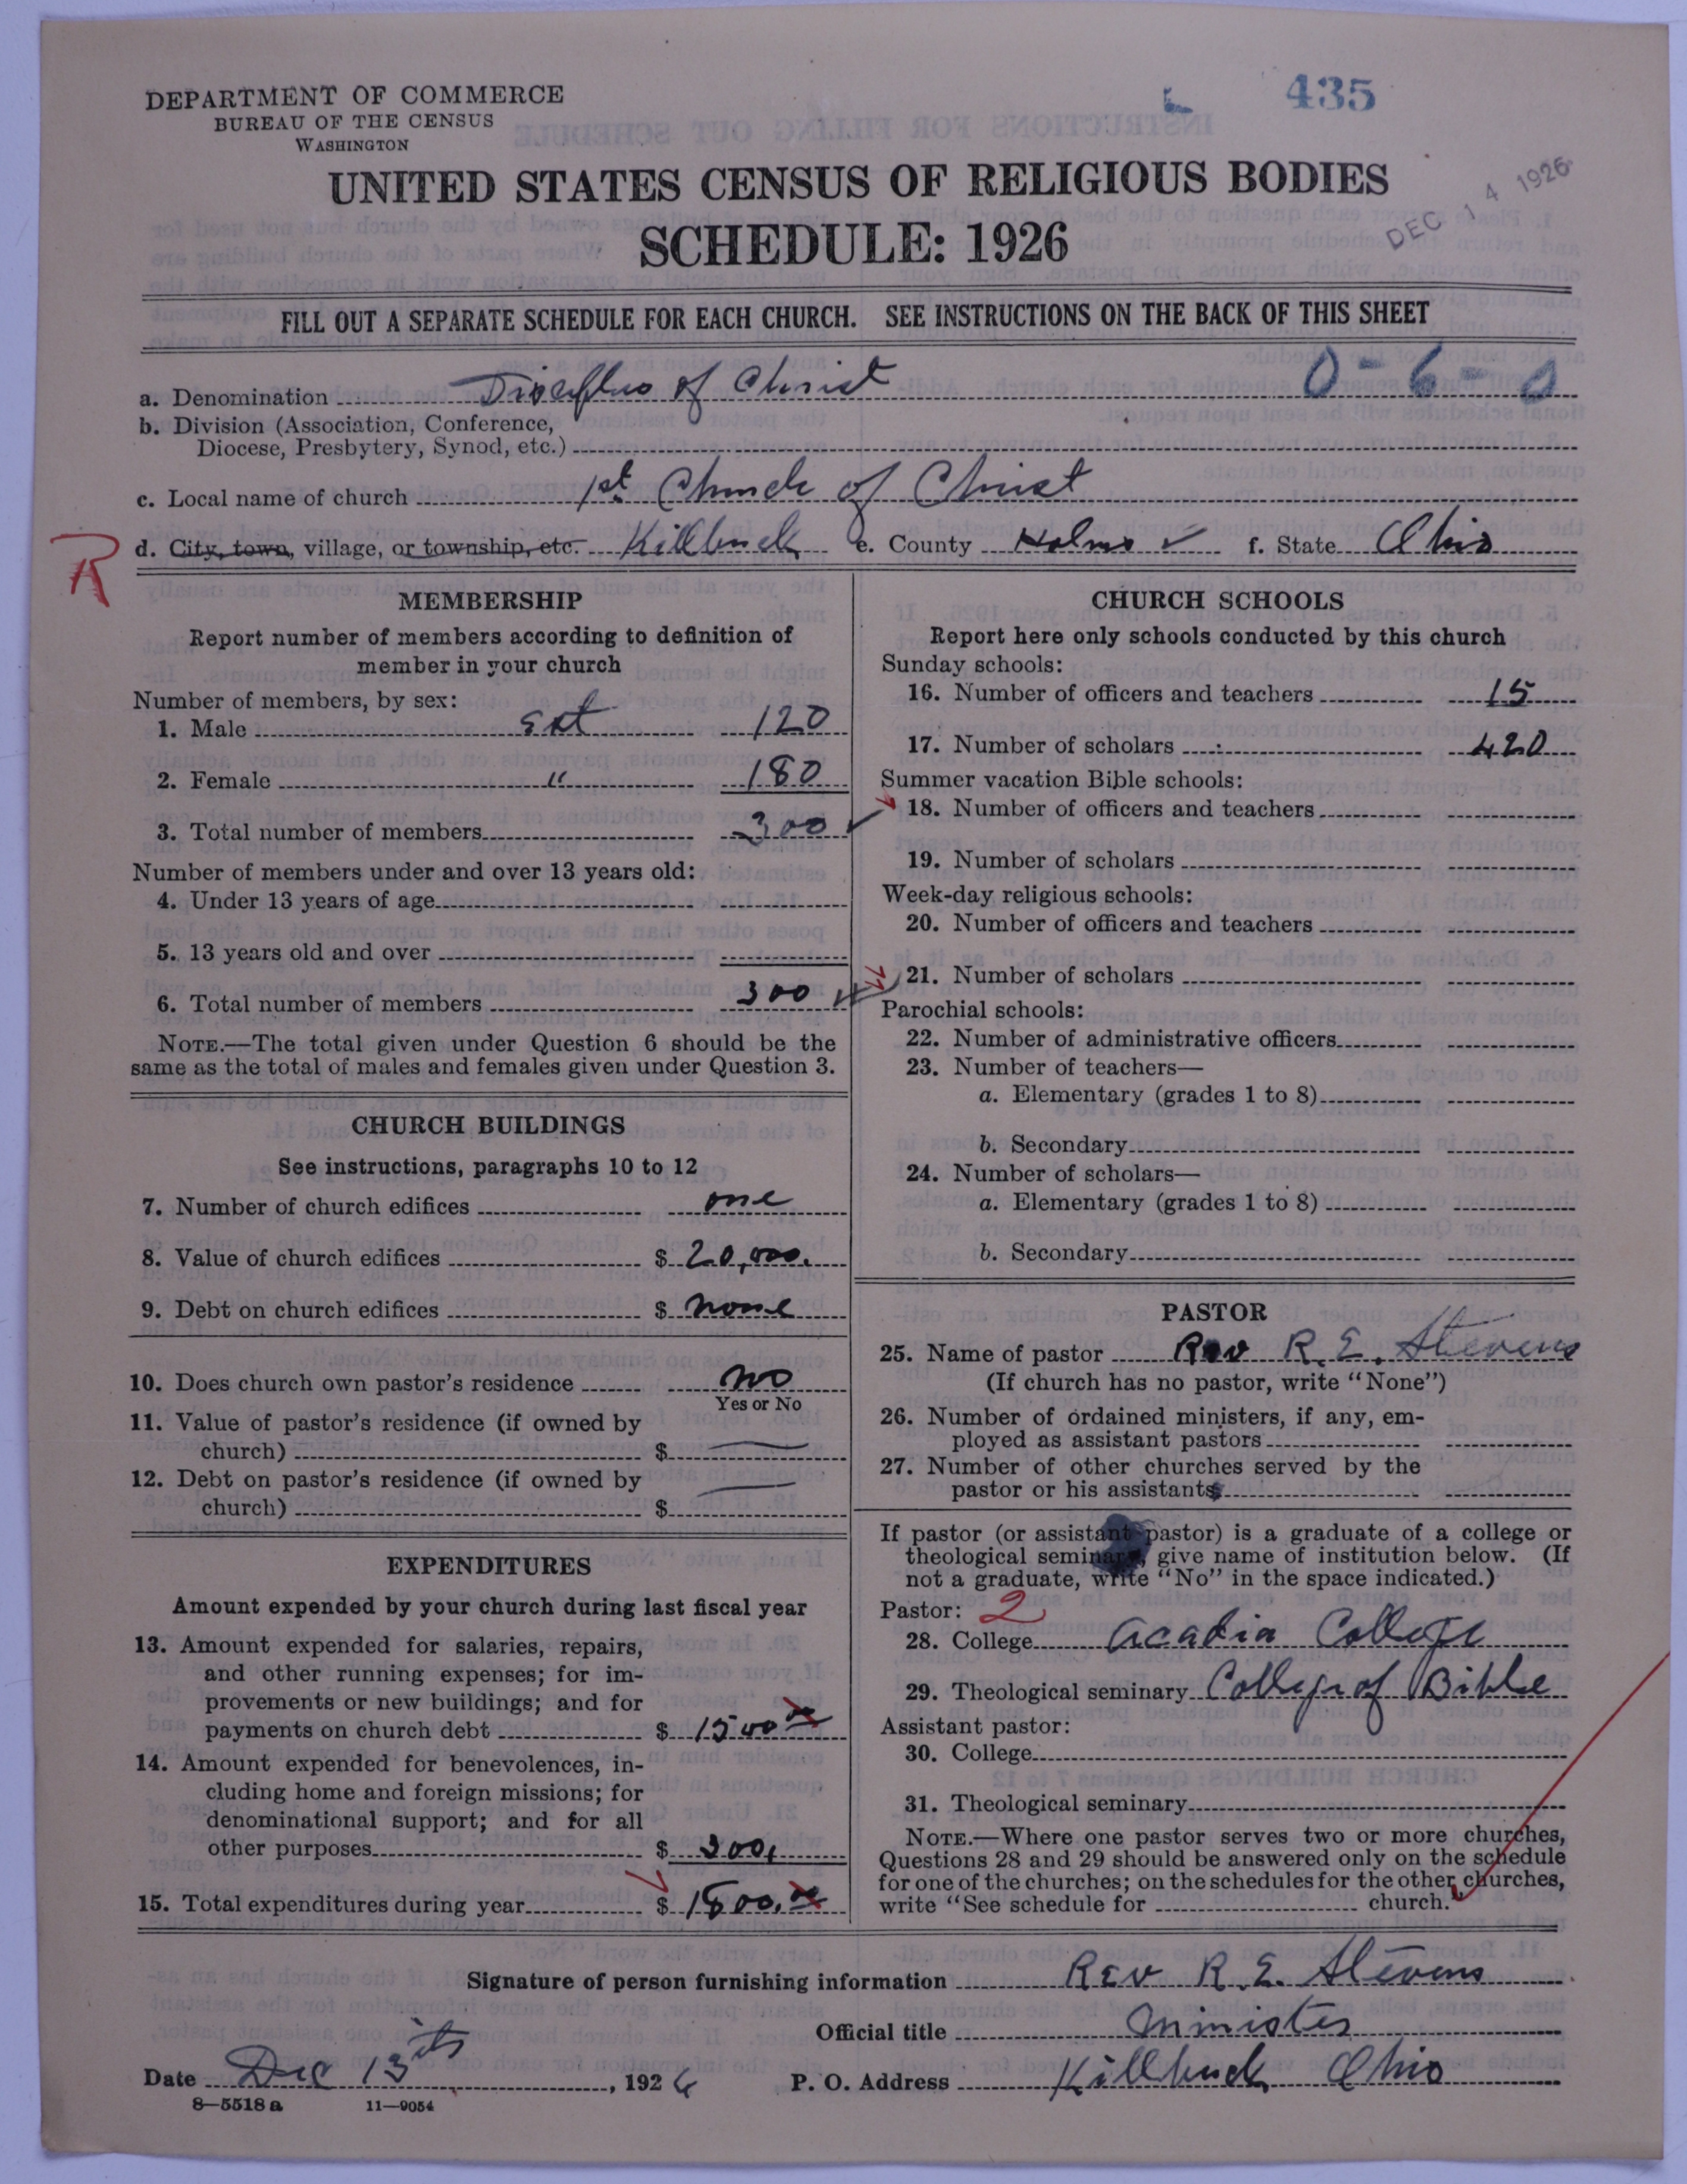 DEPARTMENT OF COMMERCE
BUREAU OF THE CENSUS
WASHINGTON
435
UNITED STATES CENSUS OF RELIGIOUS BODIES
SCHEDULE: 1926
DEC 14 1926
FILL OUT A SEPARATE SCHEDULE FOR EACH CHURCH. SEE INSTRUCTIONS ON THE BACK OF THIS SHEET
a. Denomination Disciples of Christ 0-6-0
b. Division (Association, Conference,
Diocese, Presbytery, Synod, etc.)
c. Local name of church 1st Church of Christ
R d. City, town, village, or township, etc. Killbuck e. County Holmes ✓ f. State Ohio
MEMBERSHIP
Report number of members according to definition of
member in your church
Number of members, by sex:
1. Male est 120
2. Female " 180
3. Total number of members 300
Number of members under and over 13 years old:
4. Under 13 years of age
5. 13 years old and over
6. Total number of members 300
NOTE.—The total given under Question 6 should be the
same as the total of males and females given under Question 3.
CHURCH BUILDINGS
See instructions, paragraphs 10 to 12
7. Number of church edifices one
8. Value of church edifices $ 20,000.
9. Debt on church edifices $ none
10. Does church own pastor's residence no
Yes or No
11. Value of pastor's residence (if owned by
church) $
12. Debt on pastor's residence (if owned by
church) $
EXPENDITURES
Amount expended by your church during last fiscal year
13. Amount expended for salaries, repairs,
and other running expenses; for im-
provements or new buildings; and for
payments on church debt $ 1500 00
14. Amount expended for benevolences, in-
cluding home and foreign missions; for
denominational support; and for all
other purposes $ 300.
15. Total expenditures during year $ 1800.00
CHURCH SCHOOLS
Report here only schools conducted by this church
Sunday schools:
16. Number of officers and teachers 15
17. Number of scholars 420
Summer vacation Bible schools:
18. Number of officers and teachers
19. Number of scholars
Week-day religious schools:
20. Number of officers and teachers
21. Number of scholars
Parochial schools:
22. Number of administrative officers
23. Number of teachers—
a. Elementary (grades 1 to 8)
b. Secondary
24. Number of scholars—
a. Elementary (grades 1 to 8)
b. Secondary
PASTOR
25. Name of pastor Rev R. E. Stevens
(If church has no pastor, write "None")
26. Number of ordained ministers, if any, em-
ployed as assistant pastors
27. Number of other churches served by the
pastor or his assistants
If pastor (or assistant pastor) is a graduate of a college or
theological seminary, give name of institution below. (If
not a graduate, write "No" in the space indicated.)
Pastor: 2
28. College Acadia College
29. Theological seminary College of Bible
Assistant pastor:
30. College
31. Theological seminary
NOTE.—Where one pastor serves two or more churches,
Questions 28 and 29 should be answered only on the schedule
for one of the churches; on the schedules for the other churches,
write "See schedule for church.
Signature of person furnishing information Rev R. E. Stevens
Official title Minister
Date Dec 13th, 1926 P. O. Address Killbuck Ohio
8—5518 a 11—9054